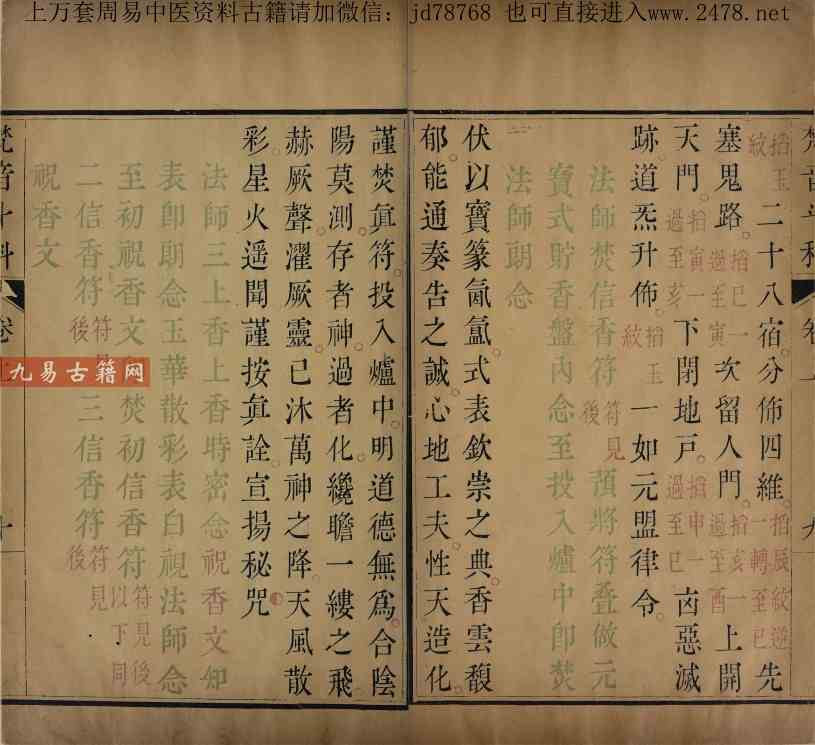 上万套周易中医资料古籍请加微信：jd78768 也可直接进入www.2478.net
掐玉紋 二十八宿分佈四維 掐辰紋逆一轉至巳 先
塞鬼路 掐巳一過至寅 次留人門 掐亥一過至酉 上開
天門 掐寅一過至亥 下閉地戶 掐申一過至巳 凶惡滅
跡道炁升佈 掐玉紋 一如元盟律令
法師焚信香符 符見後 預將符疊做元
寶式貯香盤內念至投入爐中即焚
法師朗念
伏以寶篆氤氳式表欽崇之典香雲馥
郁能通奏告之誠心地工夫性天造化
謹焚眞符投入爐中明道德無爲合陰
陽莫測存者神過者化纔瞻一縷之飛
赫厥聲濯厥靈已沐萬神之降天風散
彩星火遥聞謹按眞詮宣揚秘咒
法師三上香上香時密念祝香文如
表即朗念玉華散彩表白視法師念
至初祝香文 焚初信香符 符見後以下同
二信香符 符見後 三信香符 符見後
祝香文
梵音斗科 卷上 九
梵音斗科 卷上 十
九易古籍网